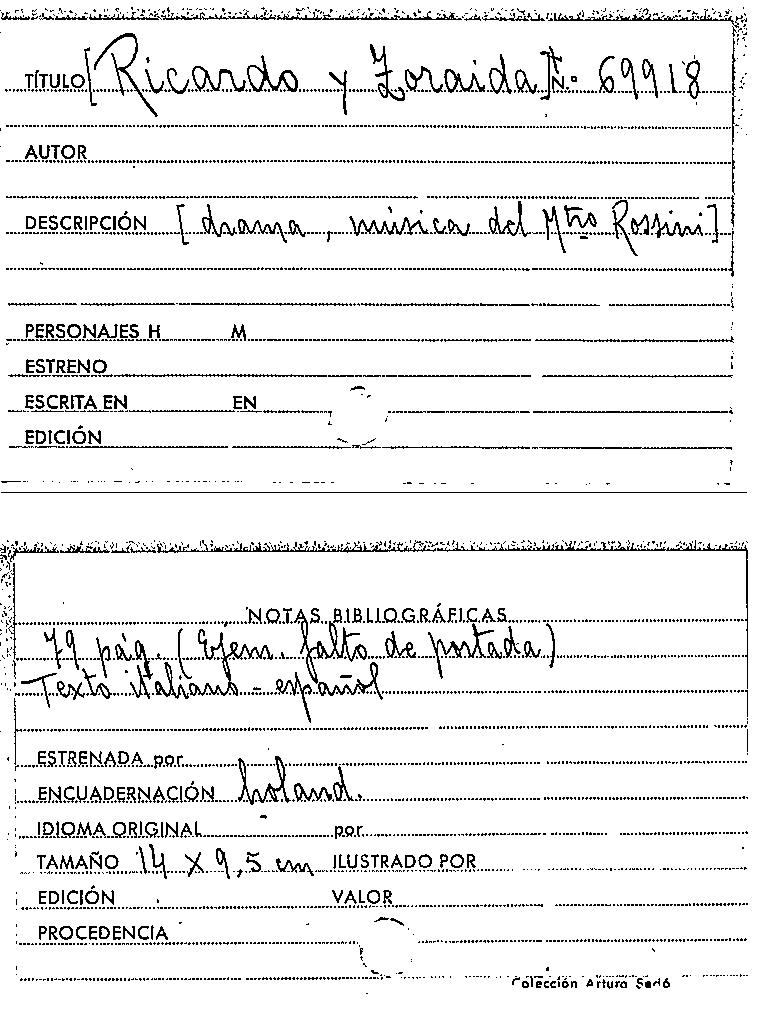 TÍTULO [Ricardo y Zoraida] N.º 69918
AUTOR
DESCRIPCIÓN [drama, música del Mtro Rossini]
PERSONAJES H M
ESTRENO
ESCRITA EN EN
EDICIÓN
NOTAS BIBLIOGRÁFICAS
79 pág. (Ejem. falto de portada)
Texto italiano - español
ESTRENADA por
ENCUADERNACIÓN holand.
IDIOMA ORIGINAL por
TAMAÑO 14 X 9,5 cm ILUSTRADO POR
EDICIÓN VALOR
PROCEDENCIA
Colección Arturo Sedó